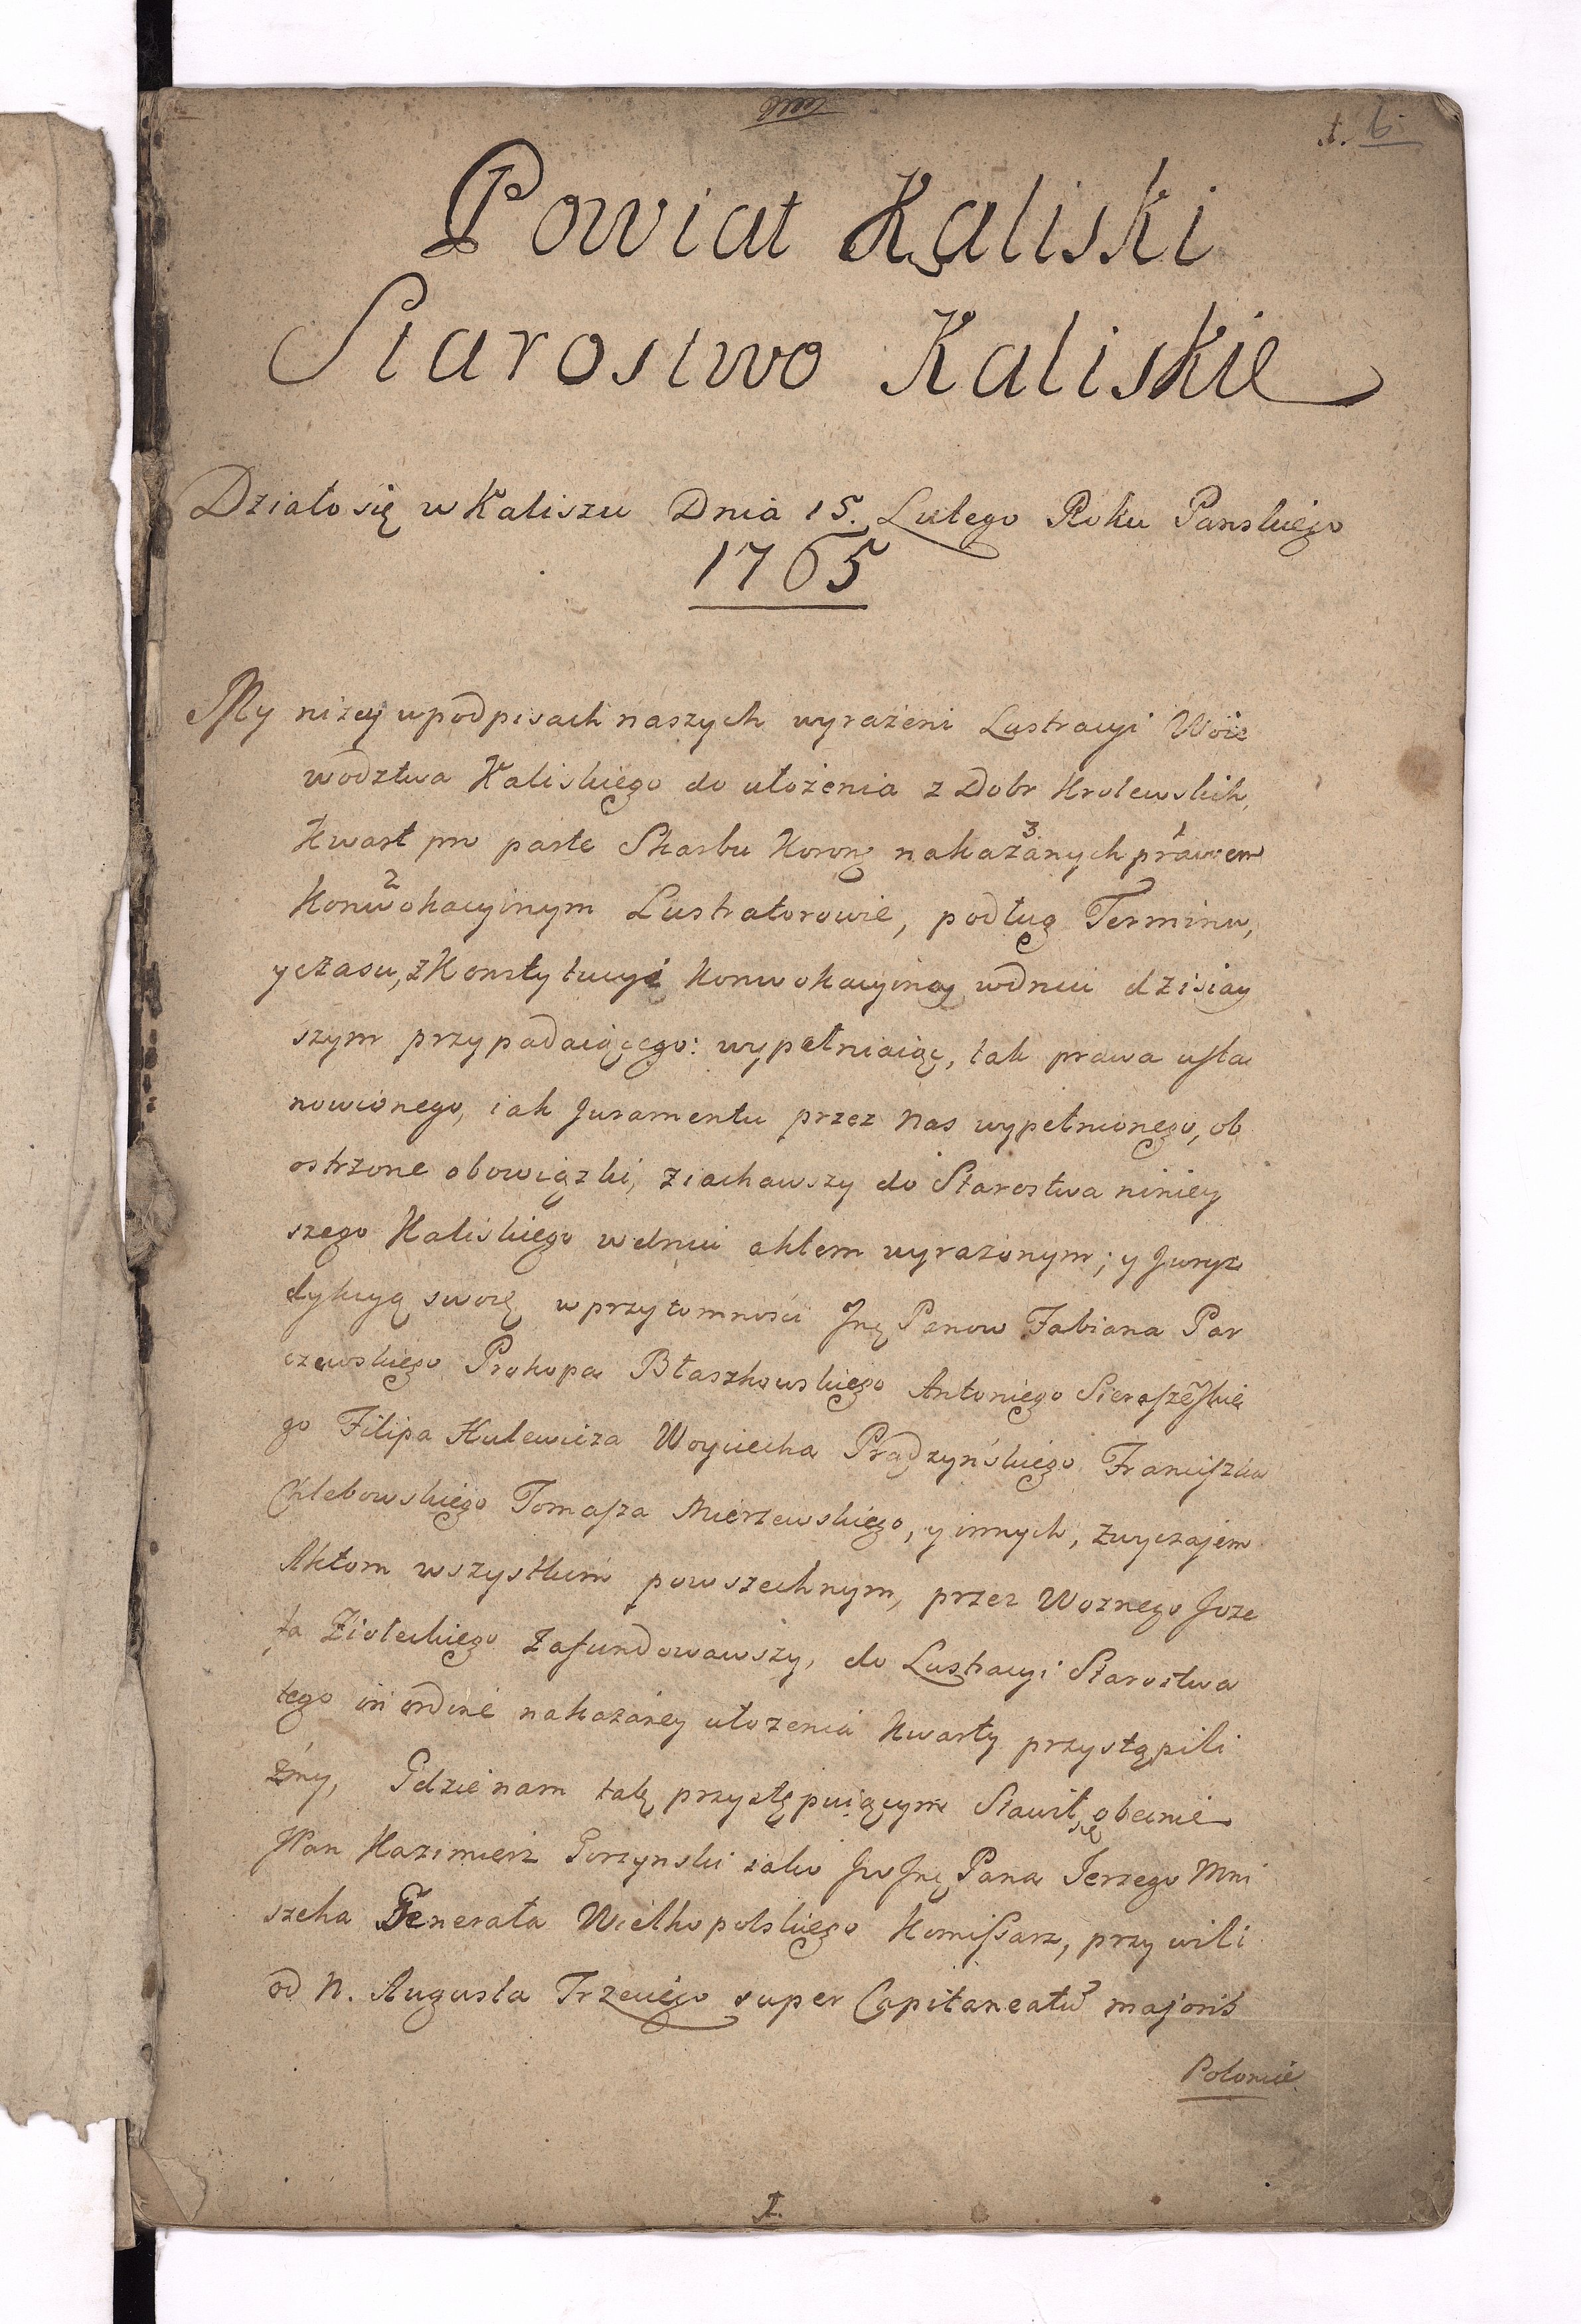 1. 6.
Powiat Kaliski
Starostwo Kaliskie
Działo się w Kaliszu Dnia 15. Lutego Roku Panskiego
1765
My nizey w podpisach naszych wyrażeni Lustracyi Woie
wodztwa Kaliskiego do ułożenia z Dobr Krolewskich
Kwart pro parte Skarbu Koronę nakazanych prawem
3 1
Konwokacyinym Lustratorowie, podług Terminu,
2
y czasu, z Konstytucyi Konwokacyiney w dniu dzisiay
szym przypadaiącego: wypełniaiąc, tak prawa usta
nowionego, iak Juramentu przez nas wypełnionego, ob
ostrzone obowiązki, ziachawszy do Starostwa niniey
szego Kaliskiego w dniu aktem wyrażonym; y Juryz
dykcyą swoię w przytomności Jnę Panow Fabiana Par
czewskiego Prokopa Błaszkowskiego Antoniego Sieraszẽskie
go Filipa Kulewicza Woyciecha Prądzyńskiego Franciszka
Chlebowskiego Tomasza Mierzewskiego, y innych, zwyczajem
Aktom wszystkim powszechnym, przez Woznego Joze
fa Ziołeckiego zafundowawszy, do Lustracyi Starostwa
tego in ordine nakazaney ułozenia Kwarty przystąpili
żmy, Gdzie nam takę przystępuiącym Stawił się obecnie
JPan Kazimierz Gorzynski iako Jw Jnę Pana Jerzego Mni
szcha Generała Wielkopolskiego Komissarz, przywili
od N. Augusta Trzeciego super Capitaneatũ majoris
Polonie
1.